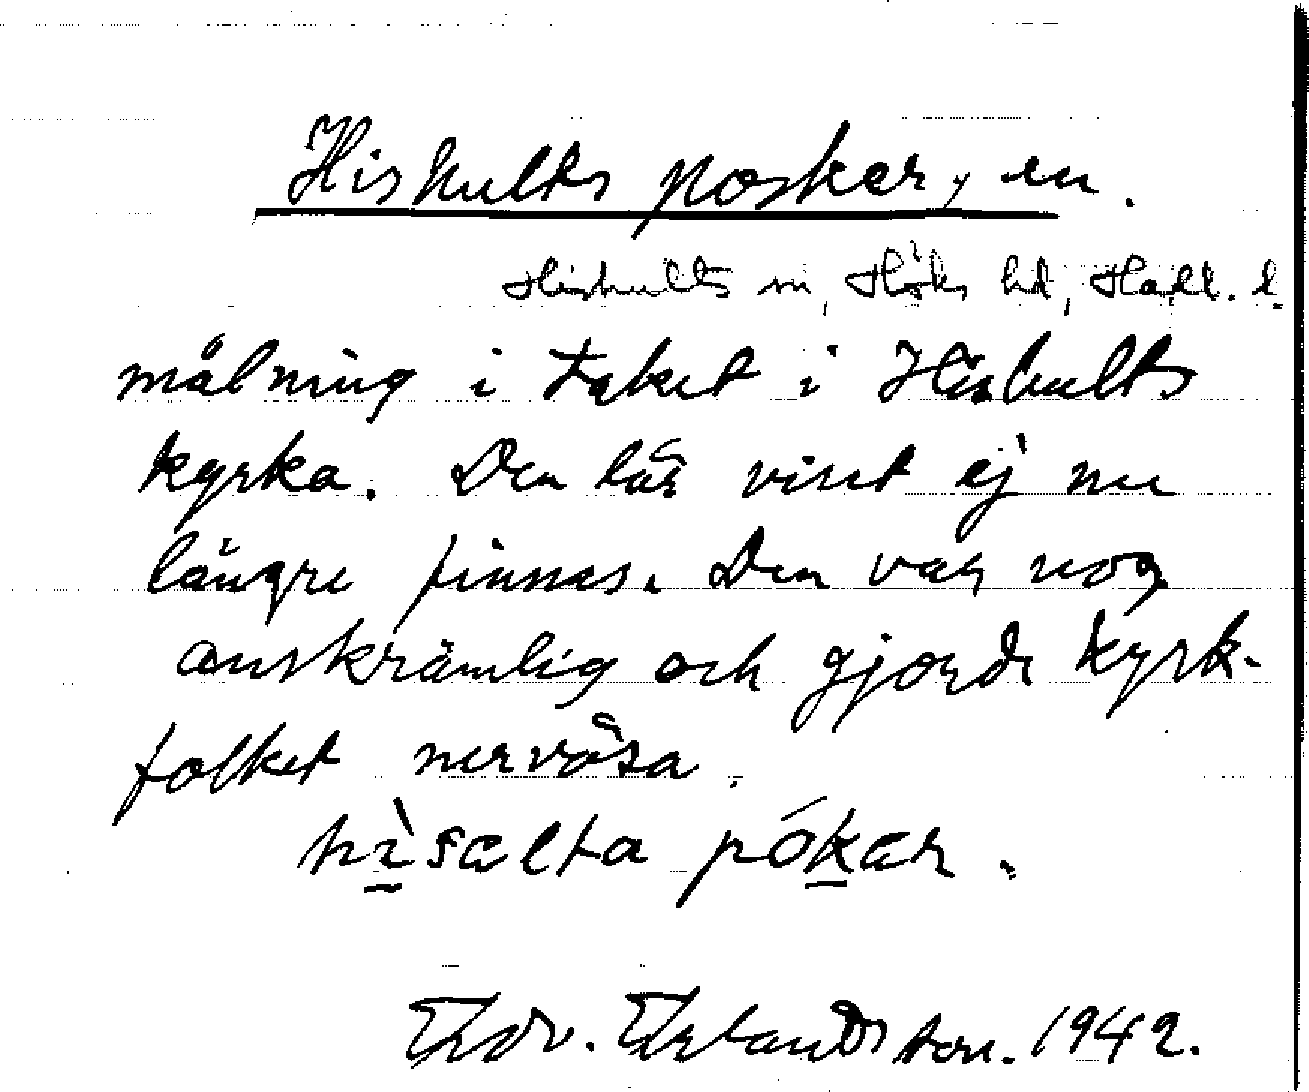 Hishults posker, en.
Hishults sn, Höks hd, Hall. l.
målning i taket i Hishults
kyrka. Den lär visst ej nu
längre finnas. Den var nog
anskrämlig och gjorde kyrk-
folket nervösa.
hìsælta pókær.
Edv. Erlandsson. 1942.